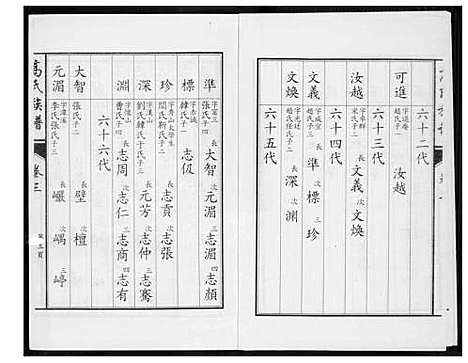 六十二代
可進 字道菴 趙氏子二 長 汝越
六十三代
汝越 字卓群 宋氏子二 長 文義 次 文煥
六十四代
文義 字咸宜 趙氏子三 長 準 次 標 三 珍
文煥 字光廷 趙氏任氏子二 長 深 次 淵
六十五代
準 字冨三 張氏子四 長 大智 次 元湄 三 志湄 四 志顏
標 字赤誠 韓氏子一 志伋
珍 字秀山太學生 閻氏靳氏子二 長 志貢 次 志張
深 字漢山 劉氏韓氏于氏子三 長 元芳 次 志仲 三 志騫
淵 曹氏子四 長 志周 次 志仁 三 志商 四 志有
六十六代
大智 張氏子二 長 壁 次 檀
元湄 字漳溪 李氏張氏子三 長 巘 次 嵎 三 崢
萬氏族譜
卷三